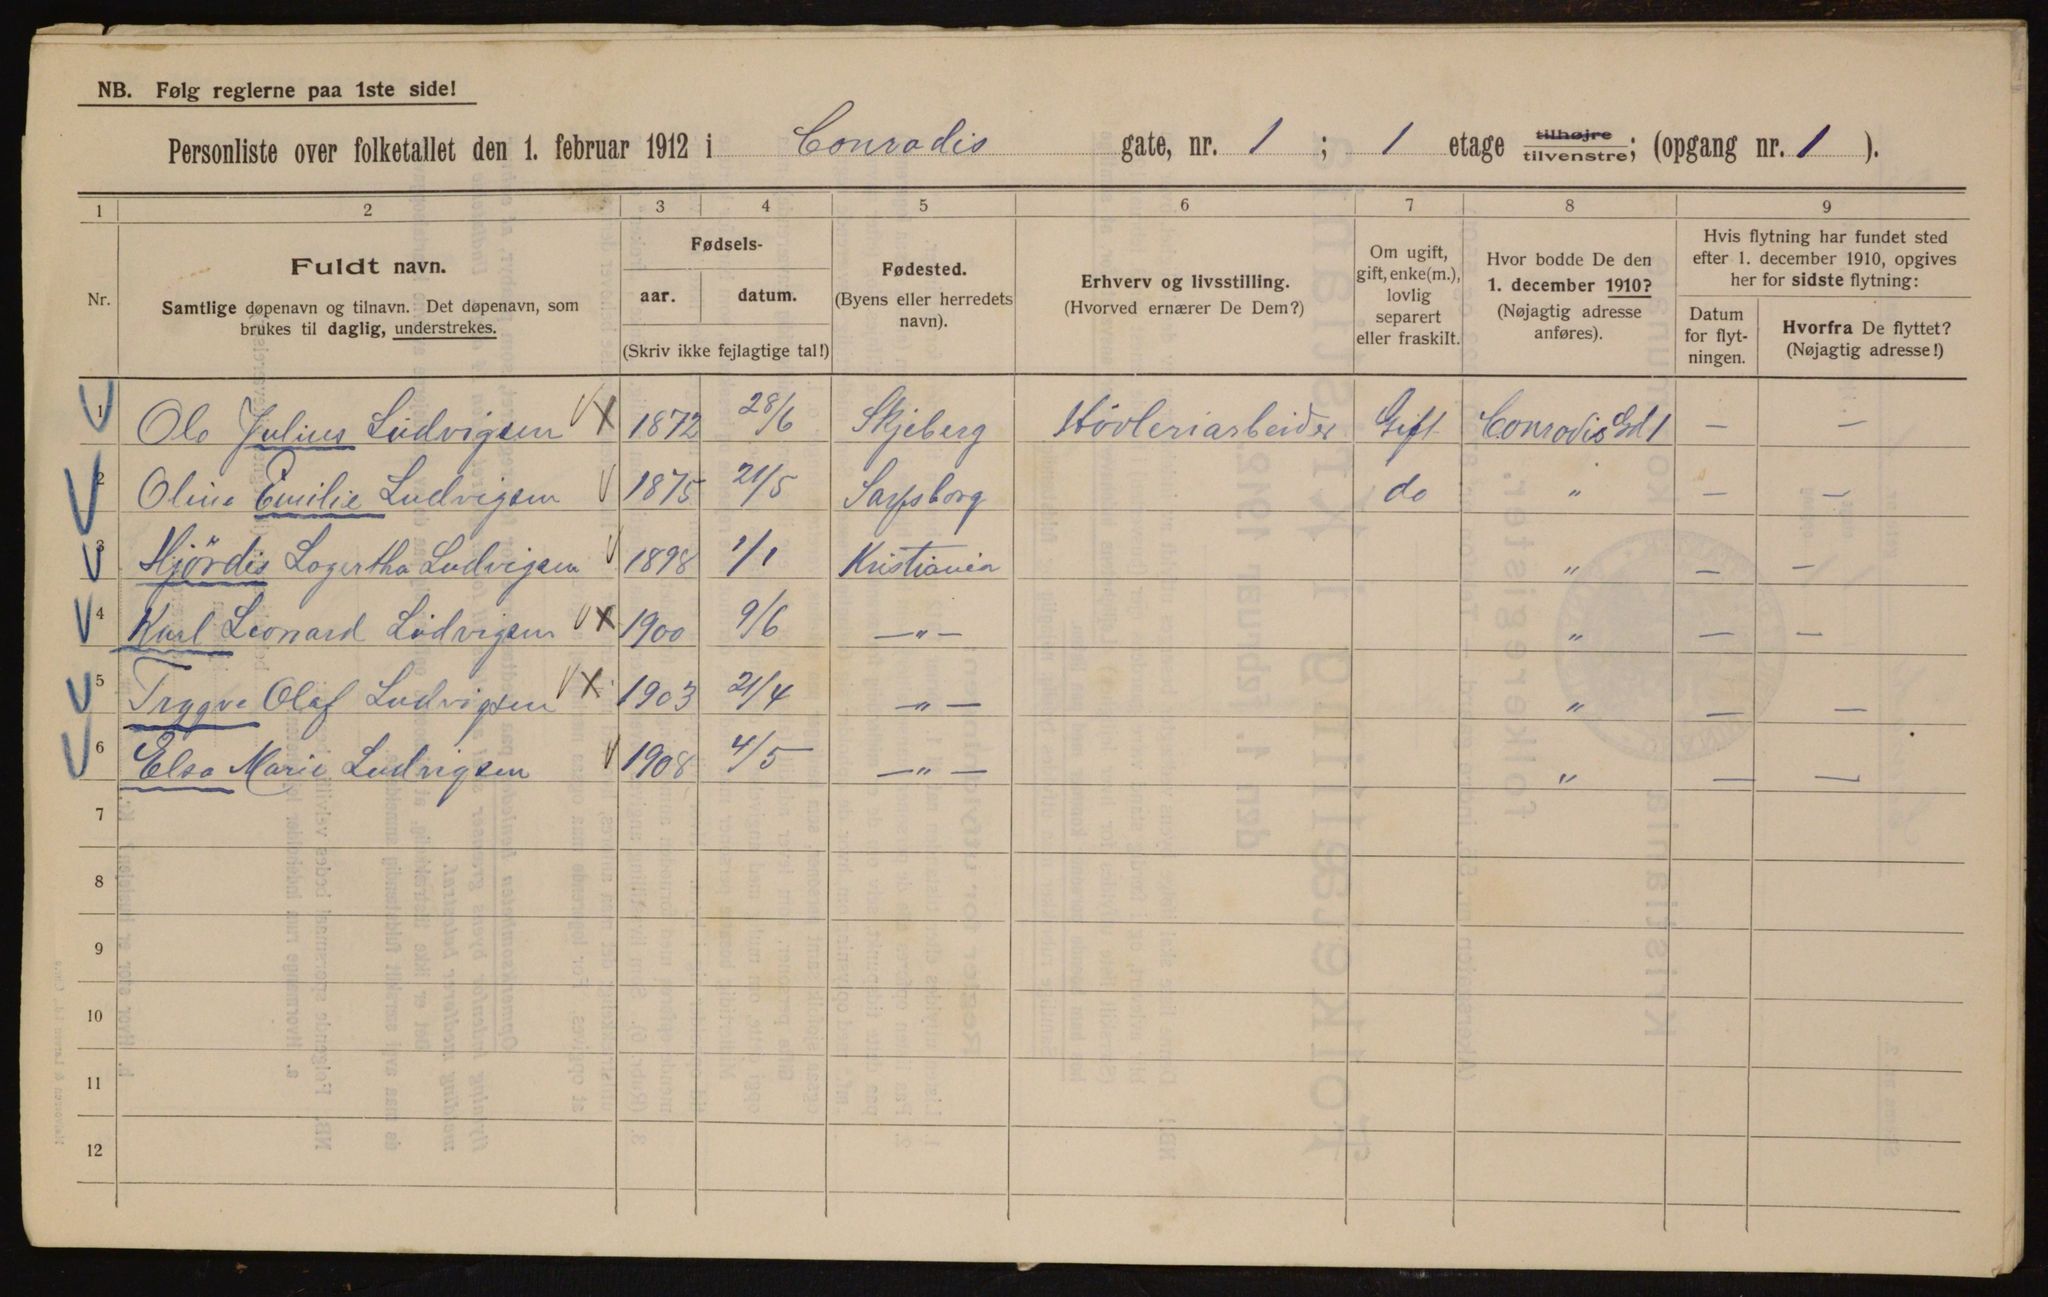 NB. Følg reglerne paa 1ste side!
Personliste over folketallet den 1. februar 1912 i Conradis gate, nr. 1 ; 1 etage tilhøjre tilvenstre; (opgang nr. 1 ).
1 2 3 4 5 6 7 8 9
Nr.
Fuldt navn.
Samtlige døpenavn og tilnavn. Det døpenavn, som
brukes til daglig, understrekes.
Fødsels-
aar. datum.
(Skriv ikke fejlagtige tal!)
Fødested.
(Byens eller herredets
navn).
Erhverv og livsstilling.
(Hvorved ernærer De Dem?)
Om ugift,
gift, enke(m.),
lovlig
separert
eller fraskilt.
Hvor bodde De den
1. december 1910?
(Nøjagtig adresse
anføres).
Hvis flytning har fundet sted
efter 1. december 1910, opgives
her for sidste flytning:
Datum
for flyt-
ningen.
Hvorfra De flyttet?
(Nøjagtig adresse!)
1 Ole Julius Ludvigsen 1872 28/6 Skjeberg Høvleriarbeider Gift Conradis Gd 1 — —
2 Oline Emilie Ludvigsen 1875 21/5 Sarpsborg do " — —
3 Hjördis Lagertha Ludvigsen 1898 1/1 Kristiania " — —
4 Karl Leonard Ludvigsen 1900 9/6 —"— " — —
5 Trygve Olaf Ludvigsen 1903 21/4 —"— " — —
6 Elsa Marie Ludvigsen 1908 4/5 —"— " — —
7
8
9
10
11
12